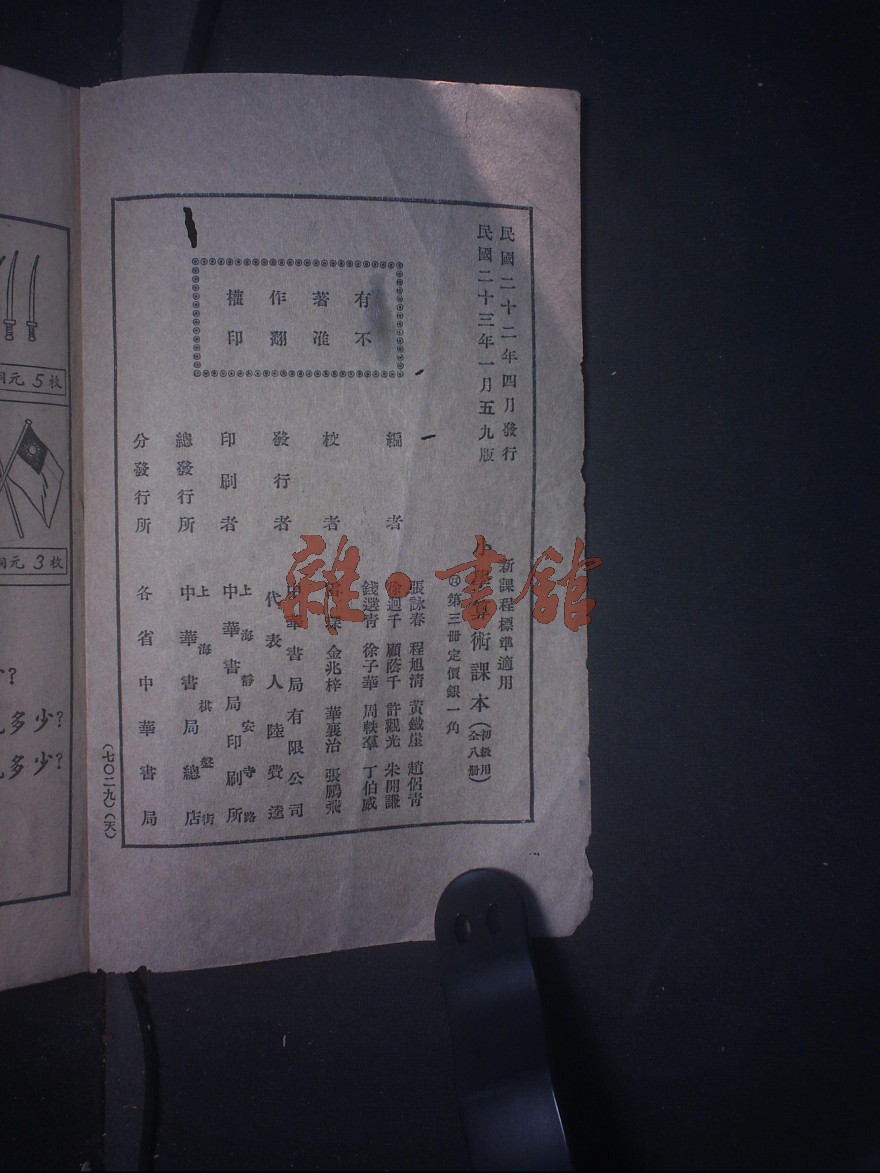 民國二十二年四月發行
民國二十三年一月五九版
有著作權
不准翻印
新課程標準適用
小學算術課本(初級用全八冊)
第三冊定價銀一角
編者
張詠春 程旭清 黃鐵崖 趙侶青
徐迥千 顧蔭千 許觀光 朱開謙
錢選青 徐子華 周軼羣 丁伯威
校者
金兆梓 華襄治 張鵬飛
發行者
中華書局有限公司
代表人 陸費逵
印刷者
上海靜安寺路
中華書局印刷所
總發行所
上海棋盤街
中華書局總店
分發行所
各省中華書局
(七〇二九)(天)
雜·書館
銅元5枚
銅元3枚
少?
多少?
多少?